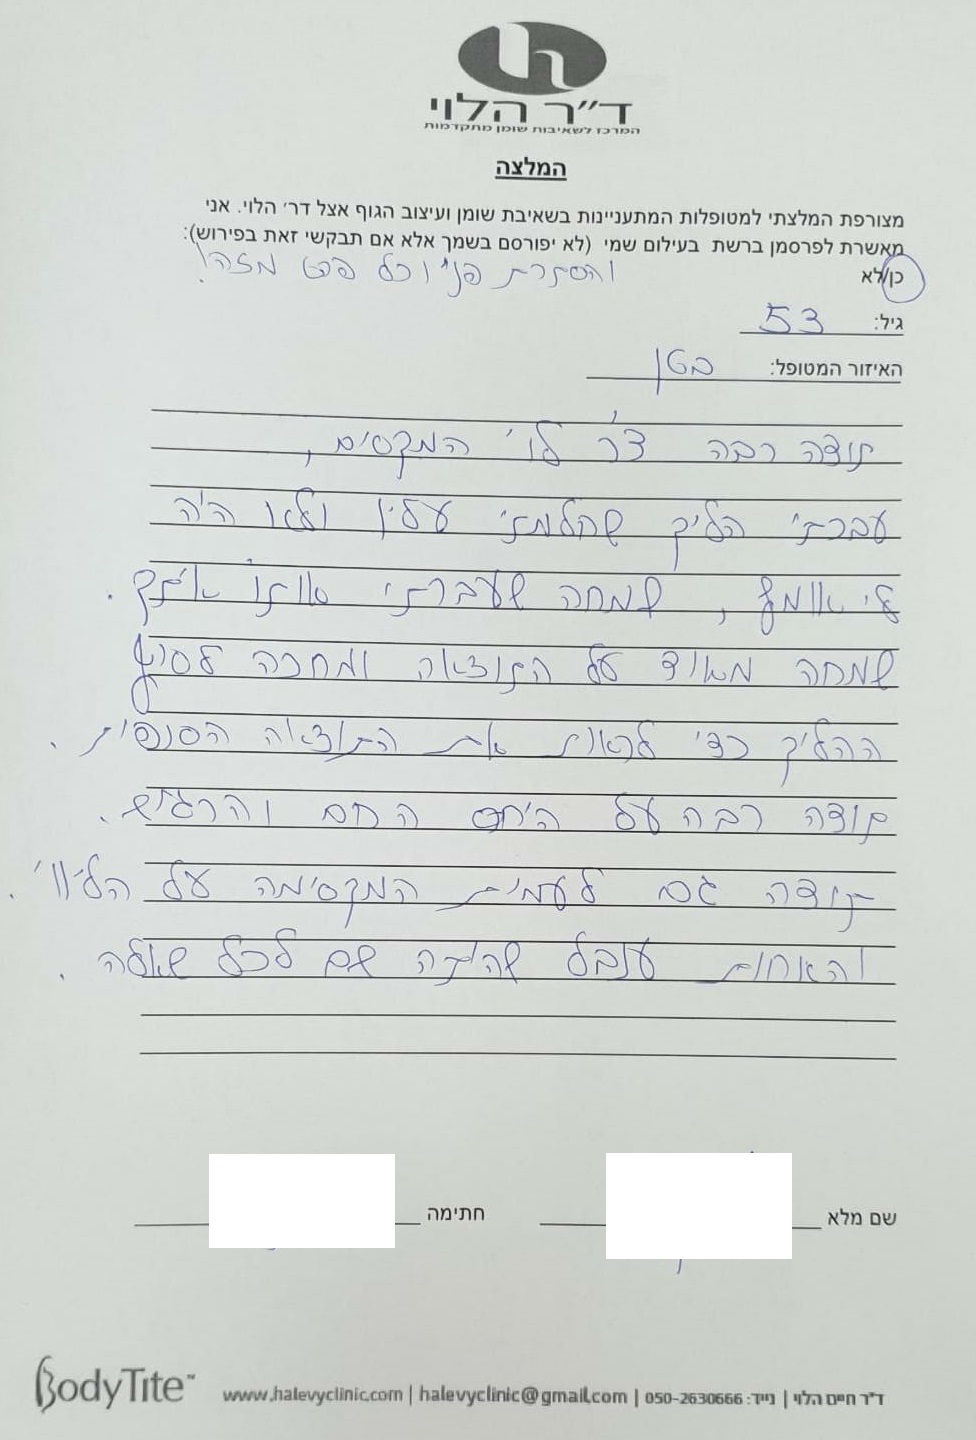 ד״ר הלוי
המרכז לשאיבות שומן מתקדמות
המלצה
מצורפת המלצתי למטופלות המתעניינות בשאיבת שומן ועיצוב הגוף אצל דר׳ הלוי. אני
מאשרת לפרסמן ברשת בעילום שמי (לא יפורסם בשמך אלא אם תבקשי זאת בפירוש):
כן/לא והסתרת פניי וכל פרט מזהה!
גיל: 53
האיזור המטופל: בטן
תודה רבה ד״ר לוי המקסים,
עברתי הליך שחלמתי עליו ולא היה
לי אומץ, שמחה שעברתי אותו איתך.
שמחה מאוד על התוצאה ומחכה לסוף
ההליך כדי לראות את התוצאה הסופית.
תודה רבה על היחס החם והרגיש.
תודה גם לעמית המקסימה על הליווי.
והאחות ענבל שהיתה שם לכל שאלה.
שם מלא חתימה
BodyTite™ www.halevyclinic.com | halevyclinic@gmail.com | ד״ר חיים הלוי | נייד: 050-2630666